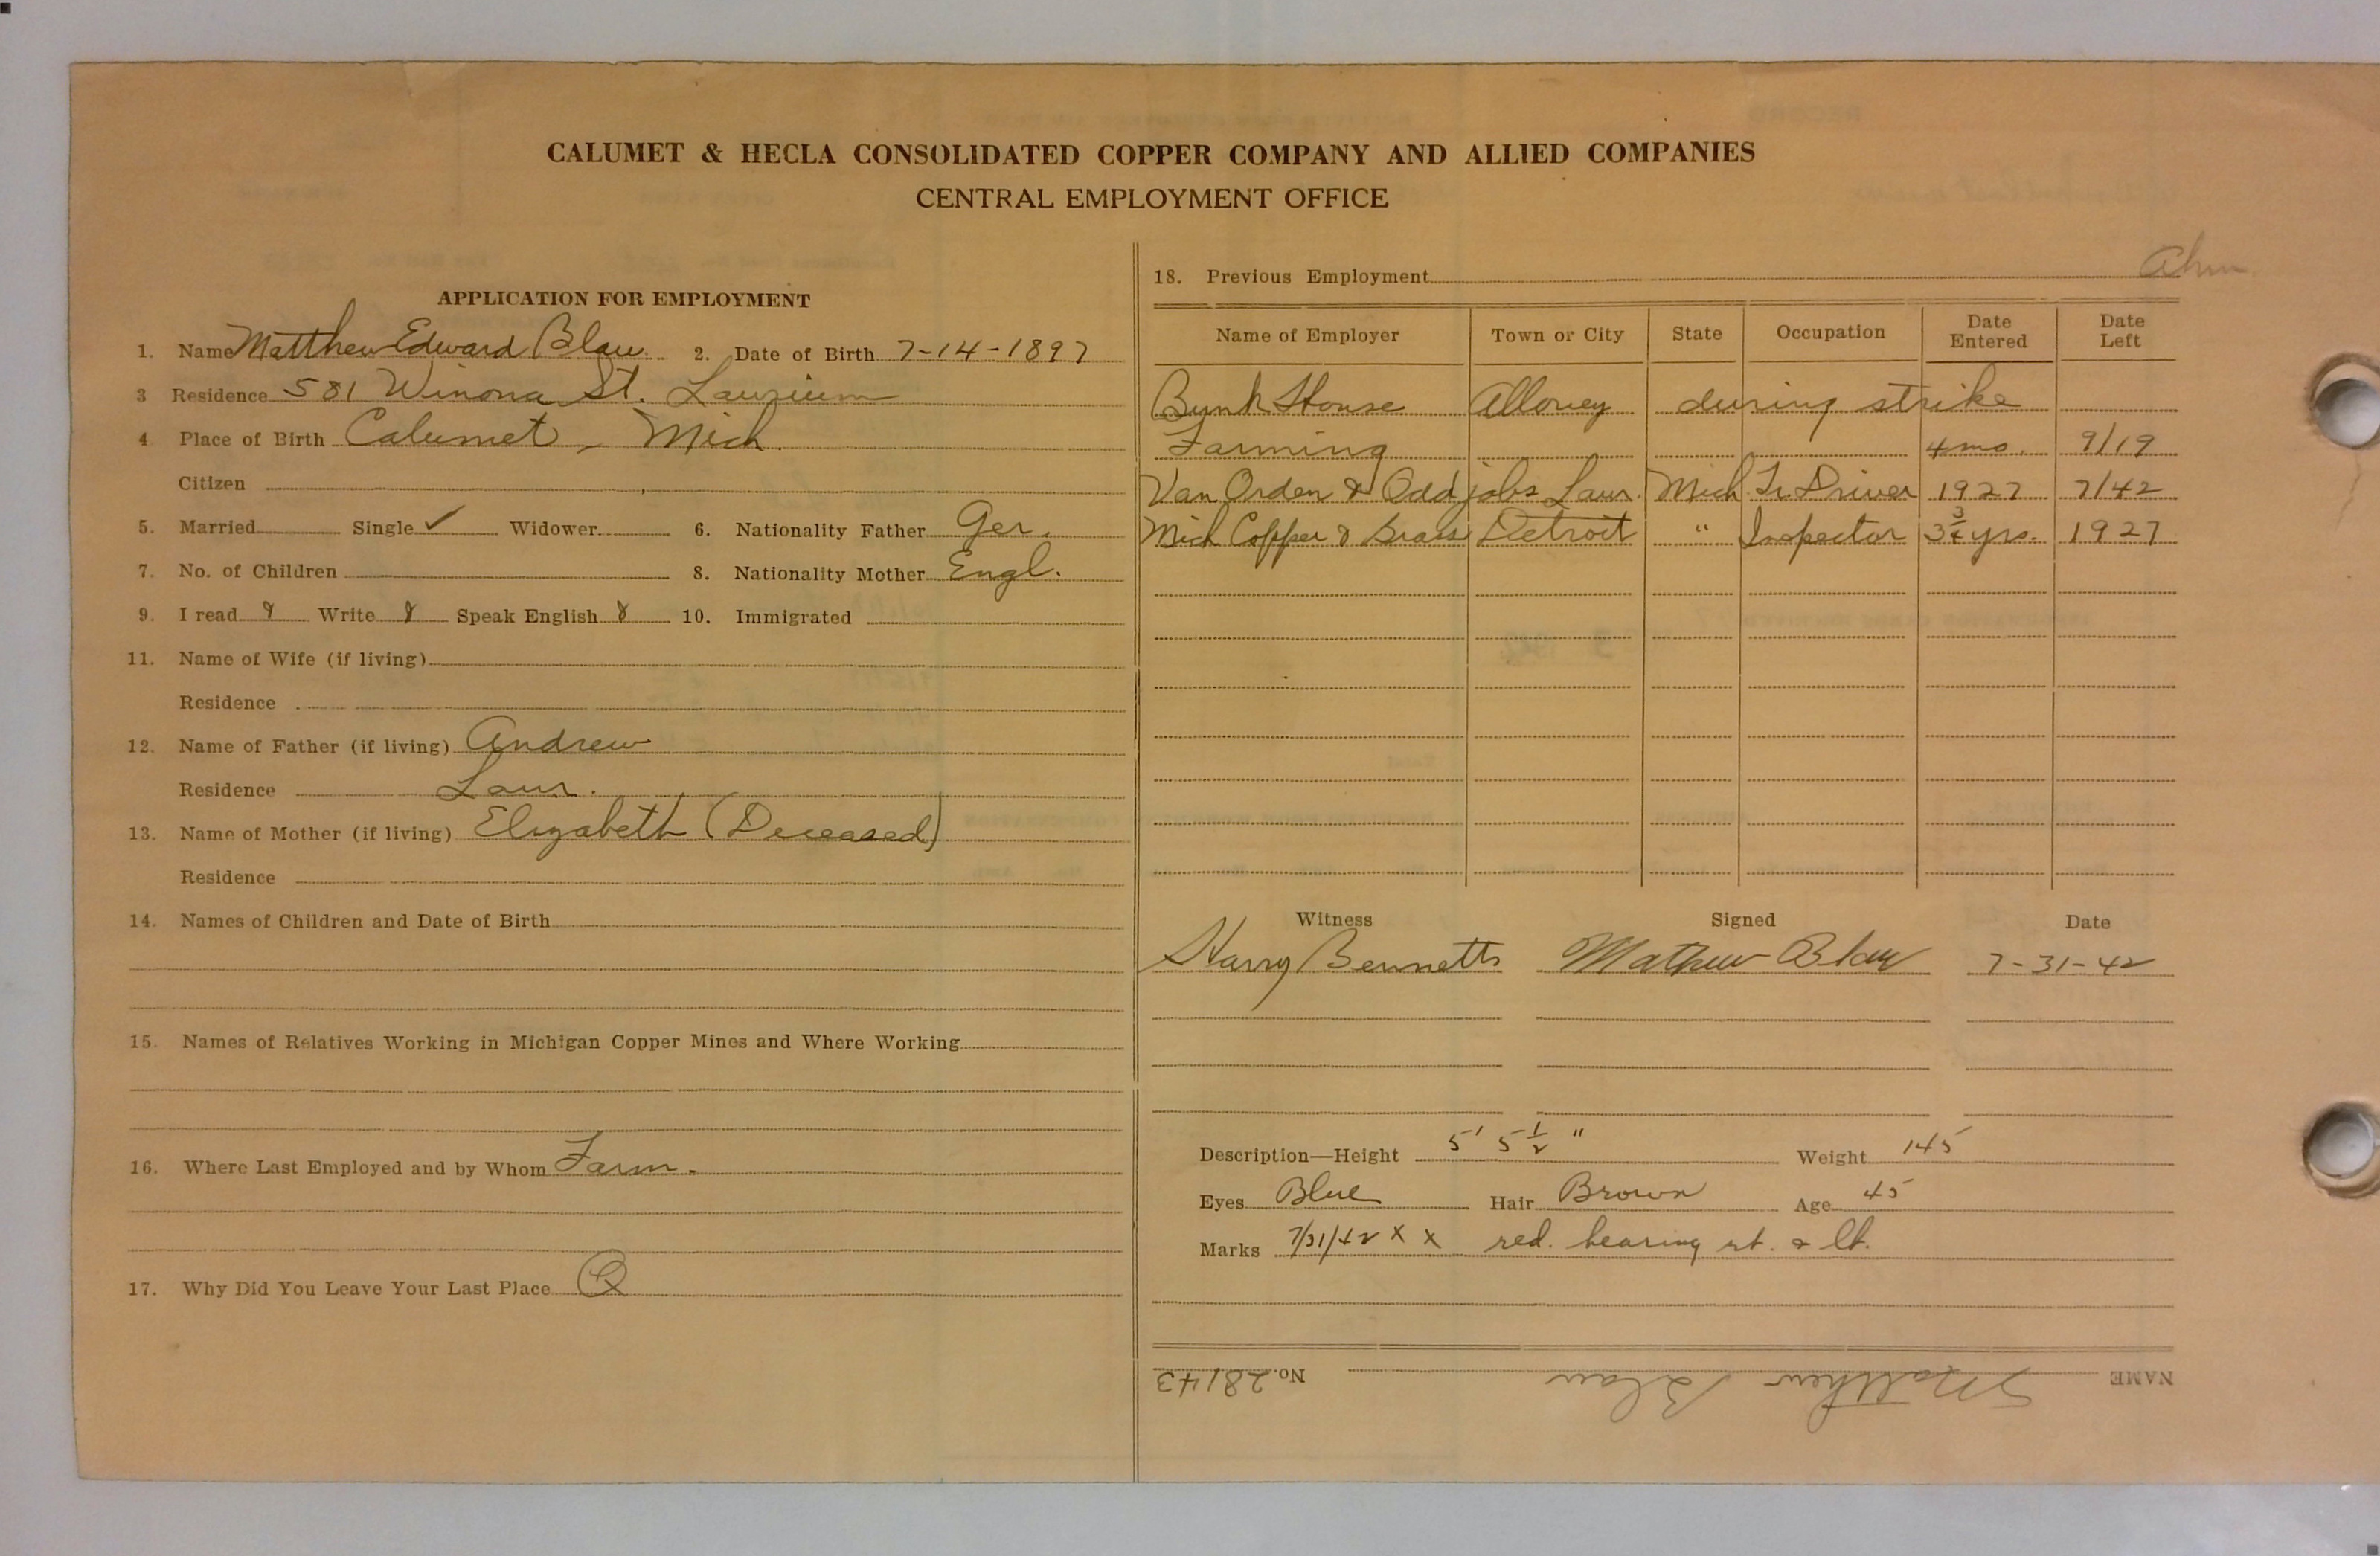 CALUMET & HECLA CONSOLIDATED COPPER COMPANY AND ALLIED COMPANIES
CENTRAL EMPLOYMENT OFFICE
APPLICATION FOR EMPLOYMENT
1. Name Matthew Edward Blau 2. Date of Birth 7-14-1897
3 Residence 581 Winona St. Laurium
4. Place of Birth Calumet, Mich.
Citizen
5. Married Single ✓ Widower 6. Nationality Father Ger.
7. No. of Children 8. Nationality Mother Engl.
9. I read Write Speak English 10. Immigrated
11. Name of Wife (if living)
Residence
12. Name of Father (if living) Andrew
Residence Laur.
13. Name of Mother (if living) Elizabeth (Deceased)
Residence
14. Names of Children and Date of Birth
15. Names of Relatives Working in Michigan Copper Mines and Where Working
16. Where Last Employed and by Whom Farm.
17. Why Did You Leave Your Last Place Q
18. Previous Employment
Name of Employer Town or City State Occupation Date Entered Date Left
Bunk House Allouey during strike
Farming 4 mo. 9/19
Van Orden & Odd jobs Laur. Mich Tr. Driver 1927 7/42
Mich Copper & Brass Detroit " Inspector 3 3/4 yrs. 1927
Witness Signed Date
Harry Bennetts Mathew Blau 7-31-42
Description—Height 5' 5 1/2 " Weight 145
Eyes Blue Hair Brown Age 45
Marks 7/31/42 x x red. hearing rt. & lt.
NAME Matthew Blau No. 28143